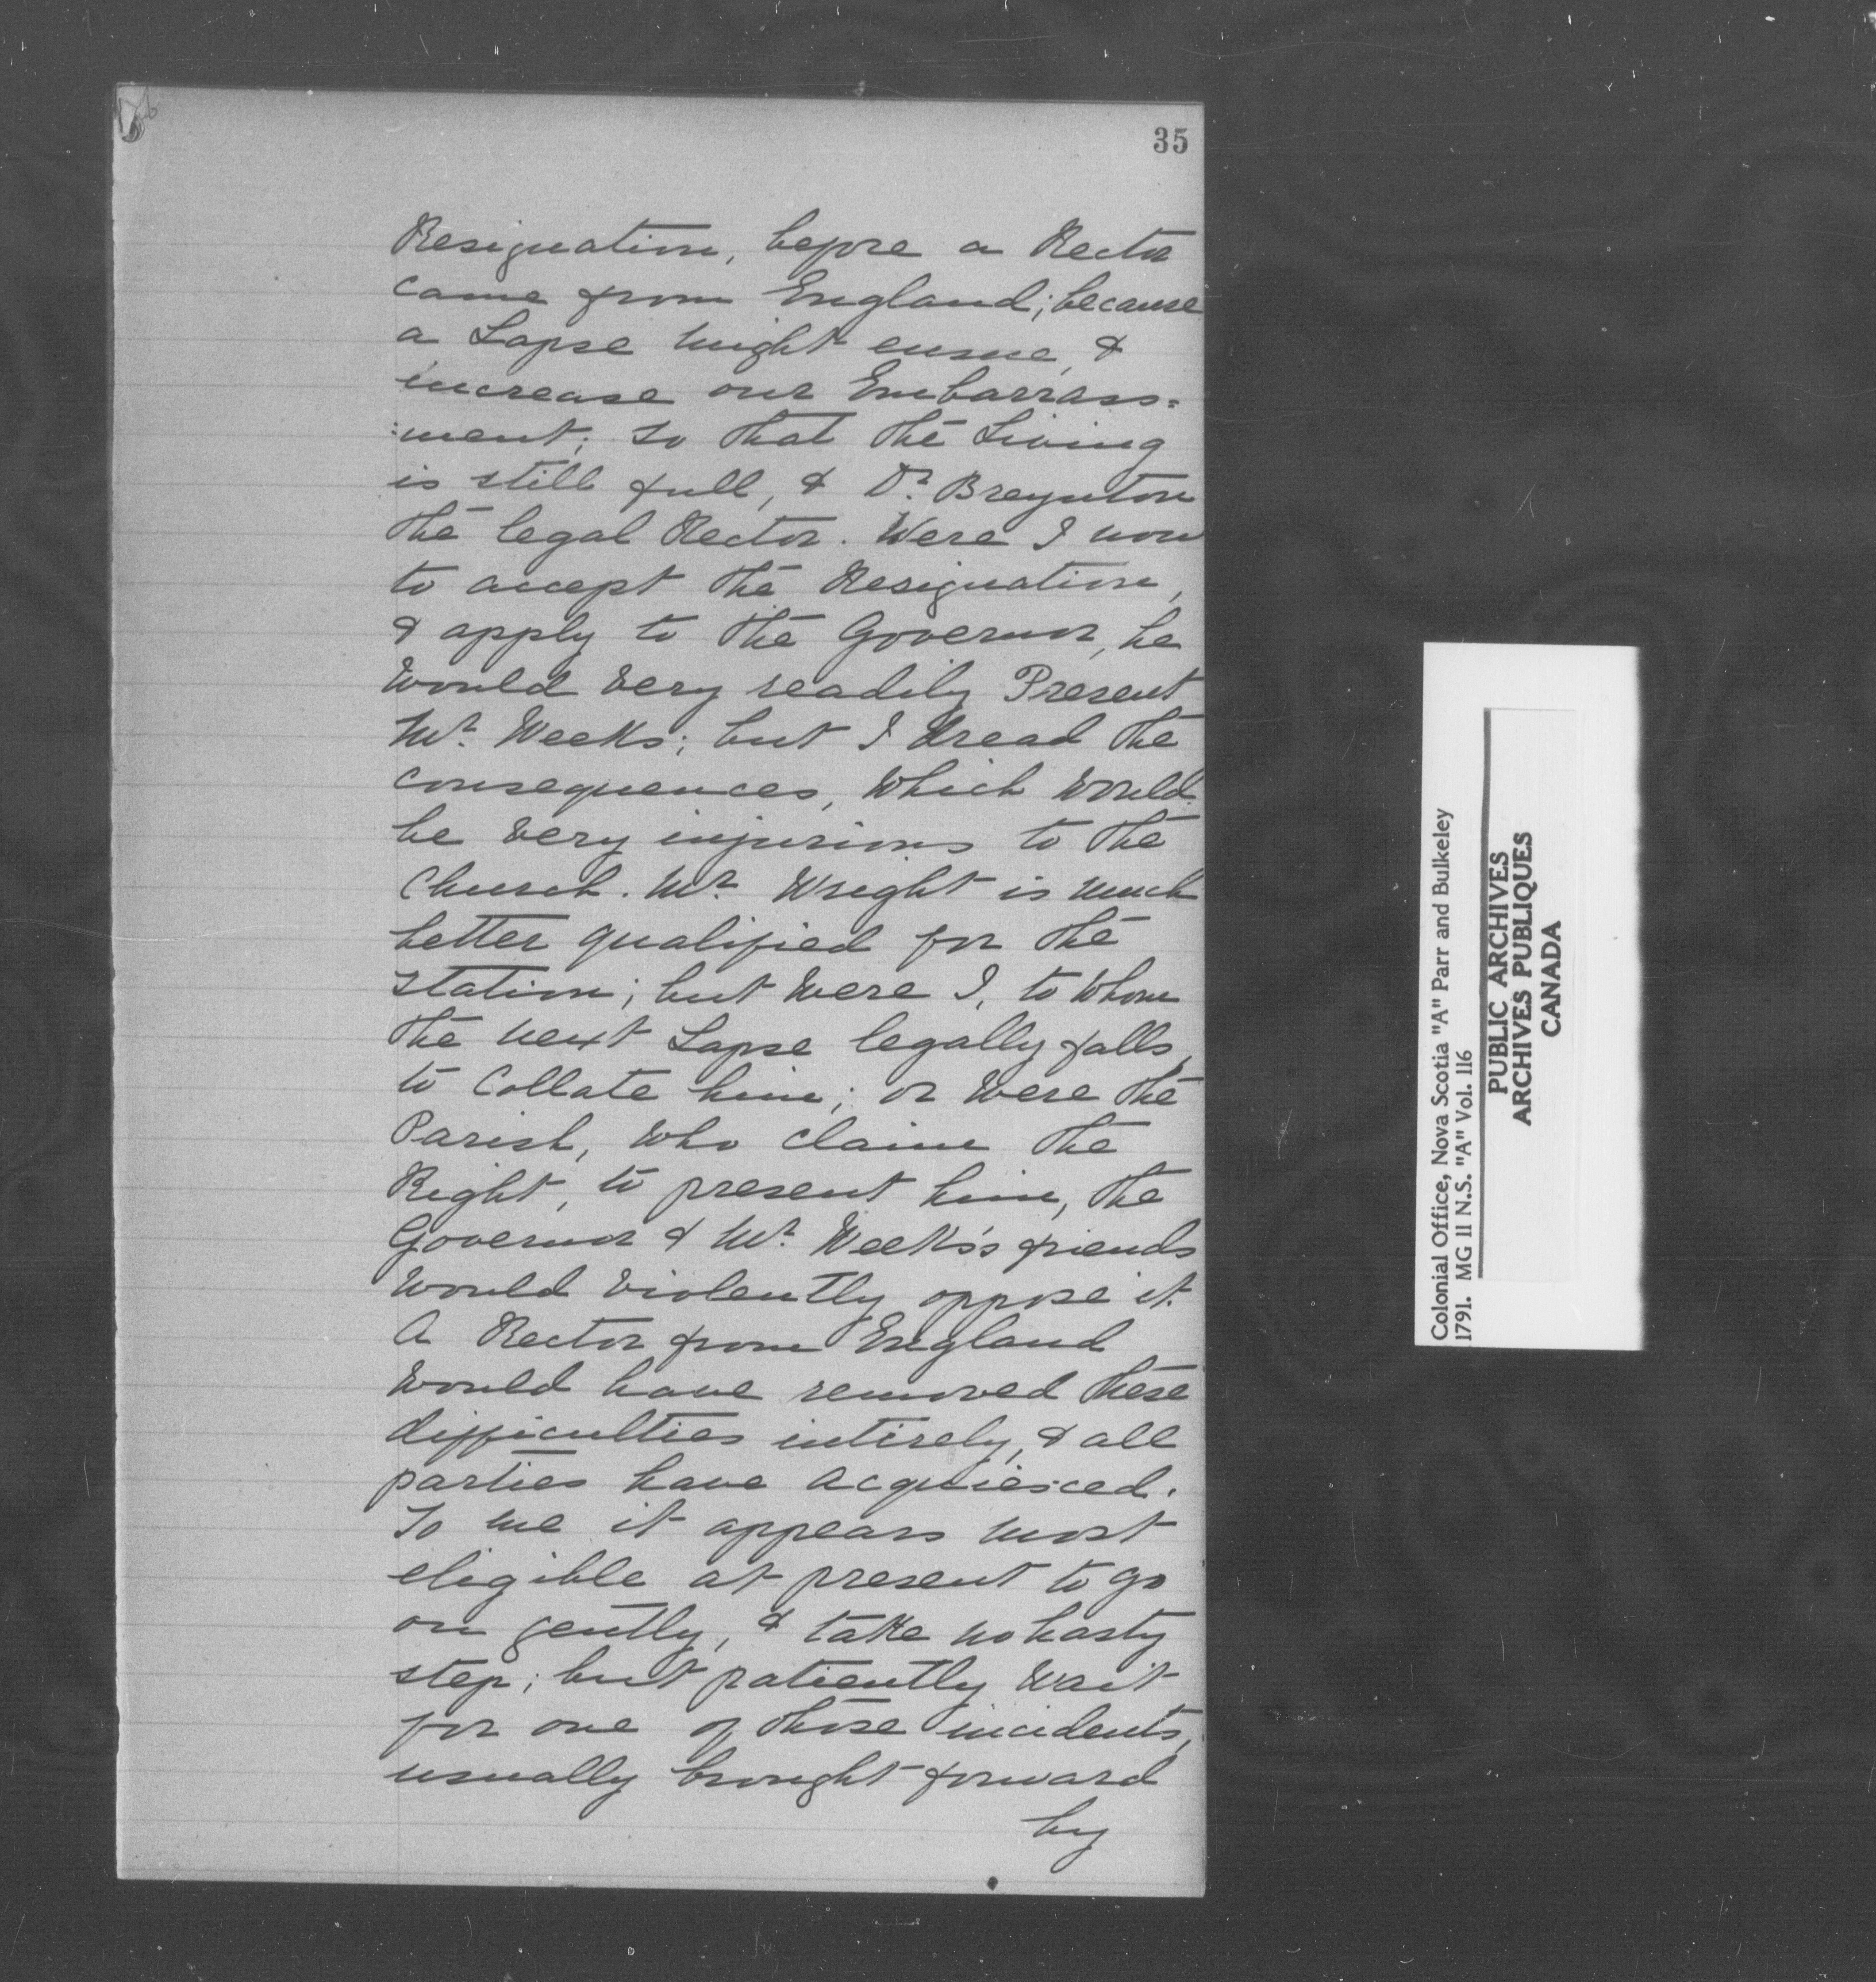 35
Resignation, before a Rector
came from England; because
a Lapse might ensue, &
increase our Embarrass=
:ment; so that the Living
is still full, & Dr. Breynton
the legal Rector. Were I now
to accept the Resignation,
& apply to the Governor, he
would very readily Present
Mr. Weeks; but I dread the
consequences, which would
be very injurious to the
Church. Mr. Wright is much
better qualified for the
station; but were I, to whom
the next Lapse legally falls,
to Collate him; or were the
Parish, who claim the
Right, to present him, the
Governor & Mr. Weeks's friends
would violently oppose it.
A Rector from England
would have removed these
difficulties intirely, & all
parties have acquiesced.
To me it appears most
eligible at present to go
on gently, & take no hasty
step; but patiently wait
for one of those incidents,
usually brought forward
by
Colonial Office, Nova Scotia "A" Parr and Bulkeley
1791. MG 11 N.S. "A" Vol. 116
PUBLIC ARCHIVES
ARCHIVES PUBLIQUES
CANADA